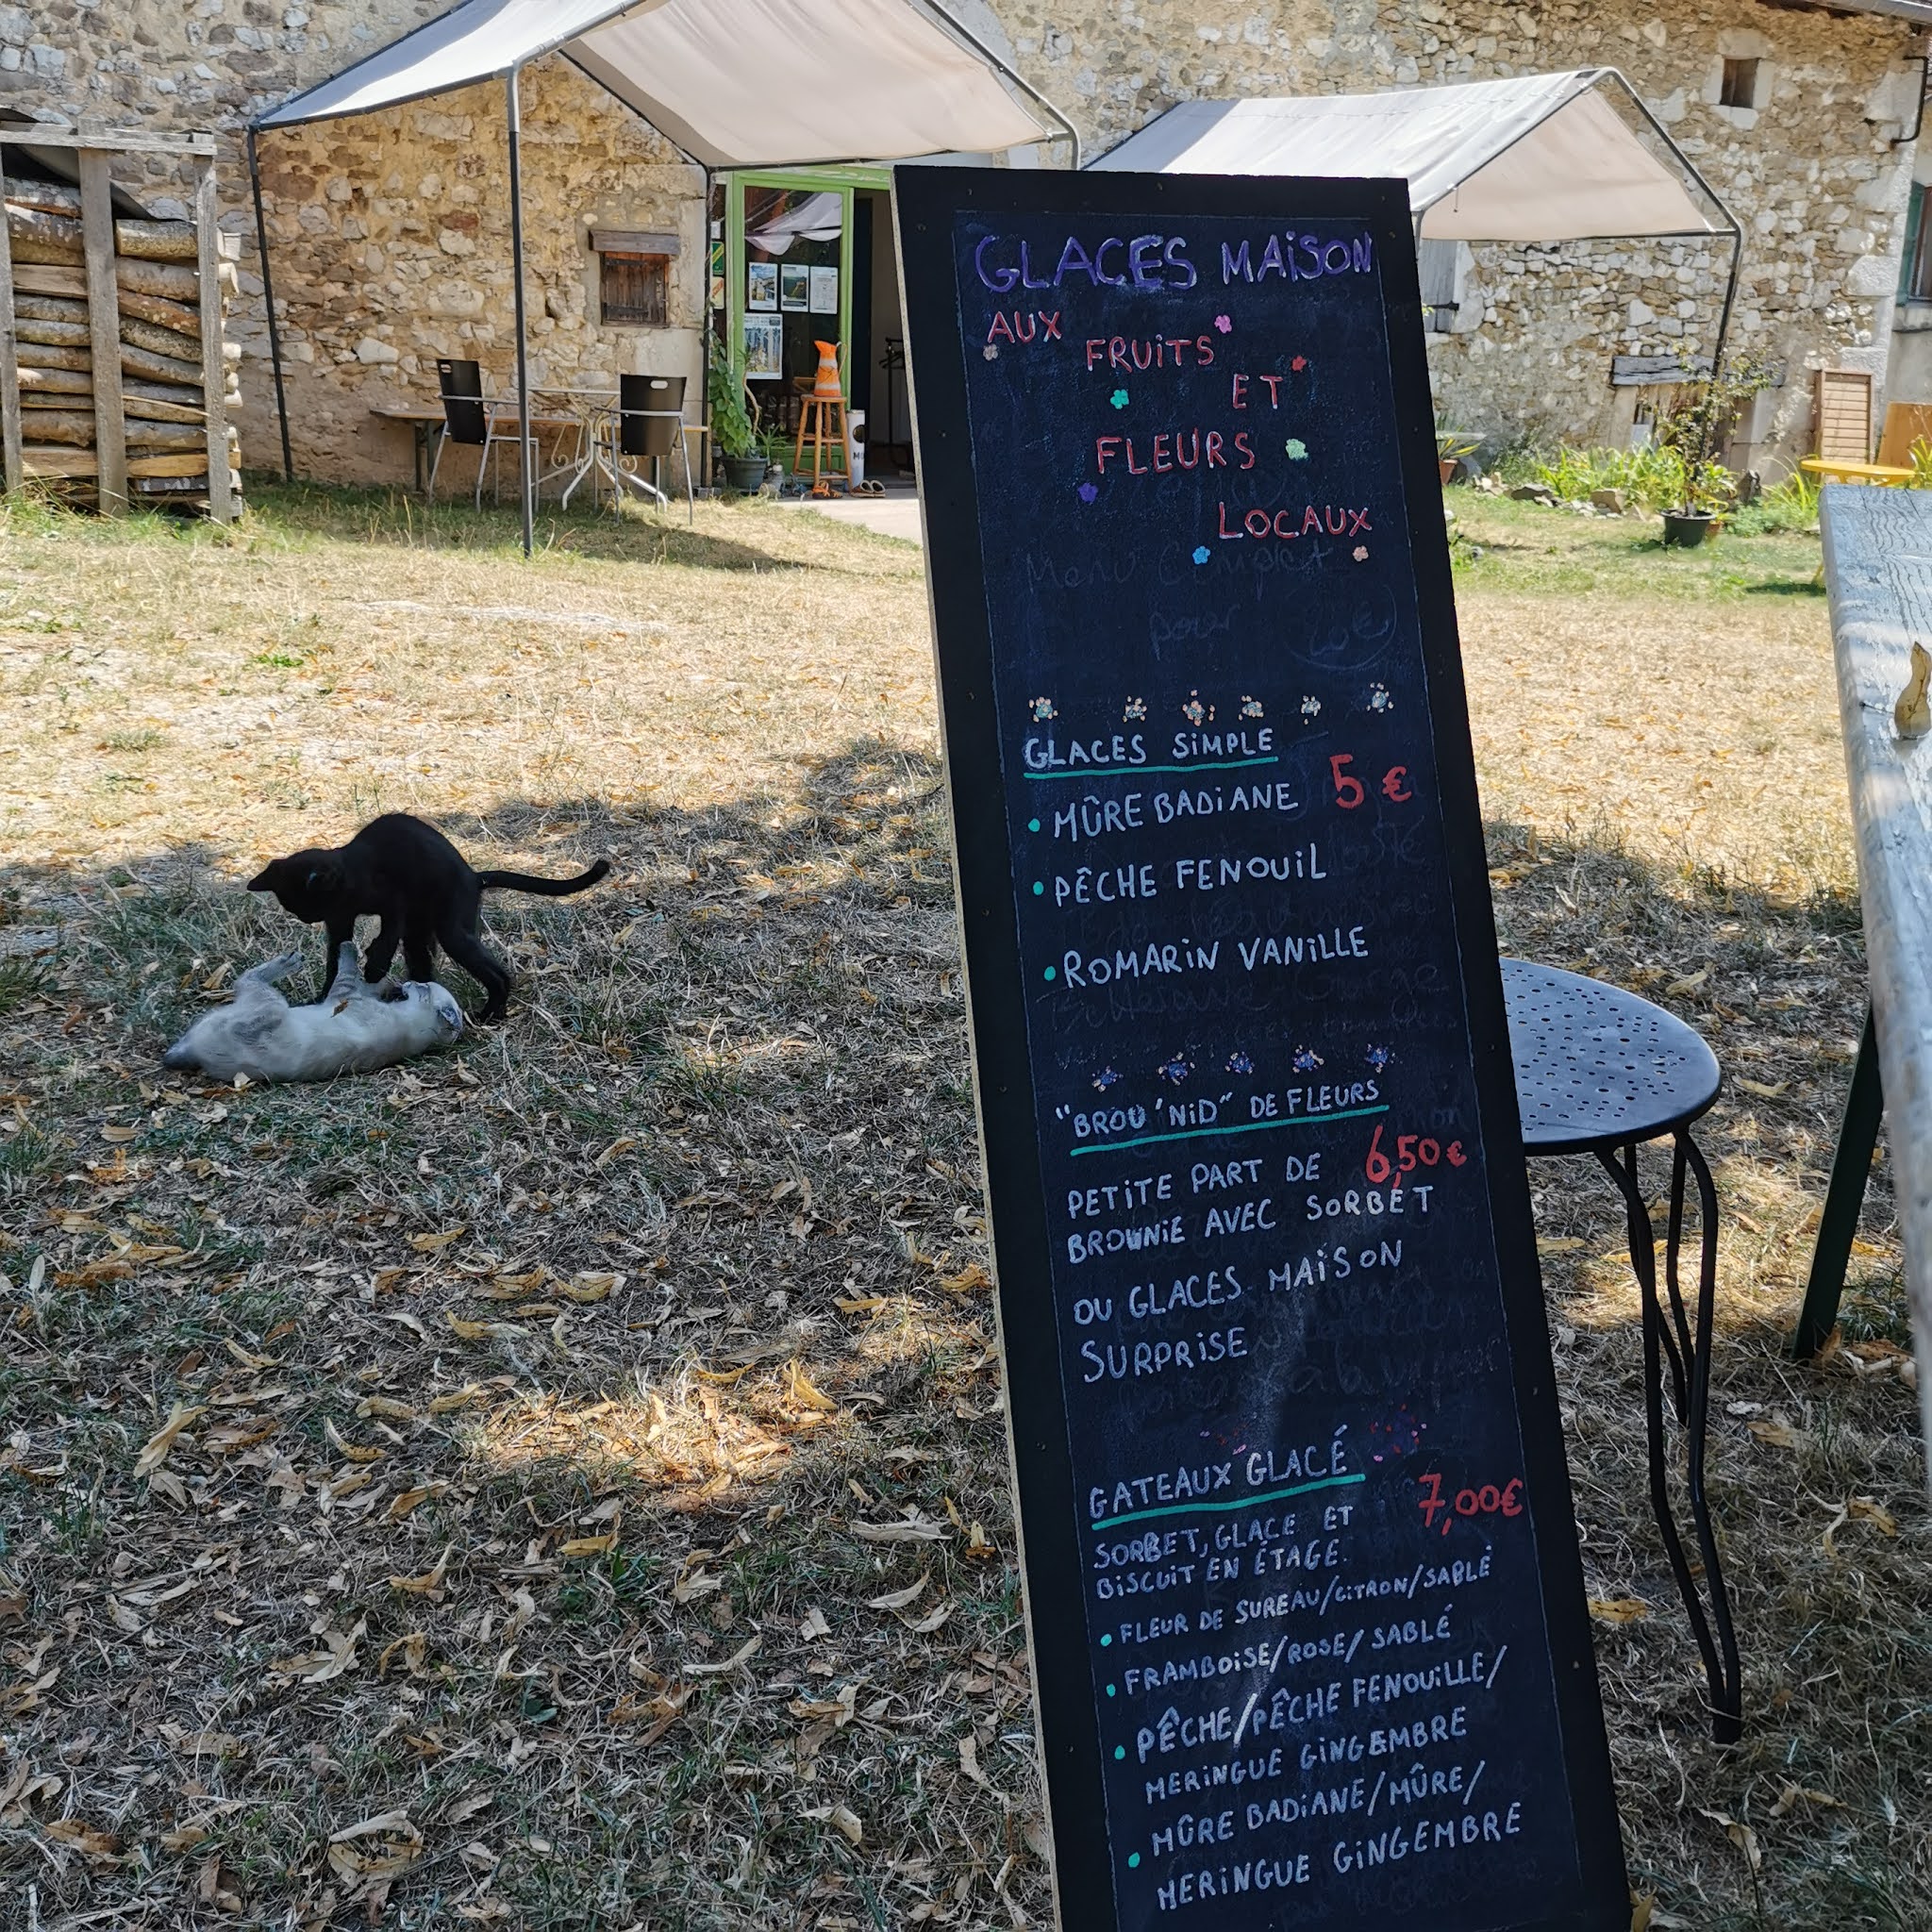 GLACES MAiSON
AUX
FRUiTS
ET
FLEURS
LOCAUX
Menu Complet
pour
GLACES SiMPLE
MÛRE BADiANE 5 €
PÊCHE FENOUiL
ROMARiN VANiLLE
"BROU'NiD" DE FLEURS
6,50 €
PETiTE PART DE
BROWNiE AVEC SORBET
OU GLACES MAiSON
SURPRiSE
GATEAUX GLACÉ
7,00€
SORBET, GLACE ET
BiSCUiT EN ÉTAGE.
FLEUR DE SUREAU/CiTRON/SABLÉ
FRAMBOiSE/ROSE/SABLÉ
PÊCHE/PÊCHE FENOUiLLE/
MERiNGUE GiNGEMBRE
MÛRE BADiANE/MÛRE/
MERiNGUE GiNGEMBRE